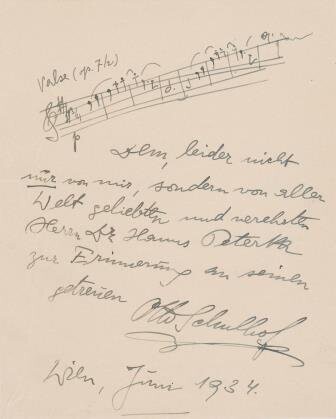 Valse (op. 7/2)
p
Dem, leider nicht
nur von mir, sondern von aller
Welt geliebten und verehrten
Herrn Dr. Hanns Peterka
zur Erinnerung an seinen
getreuen
Otto Schulhof
Wien, Juni 1934.